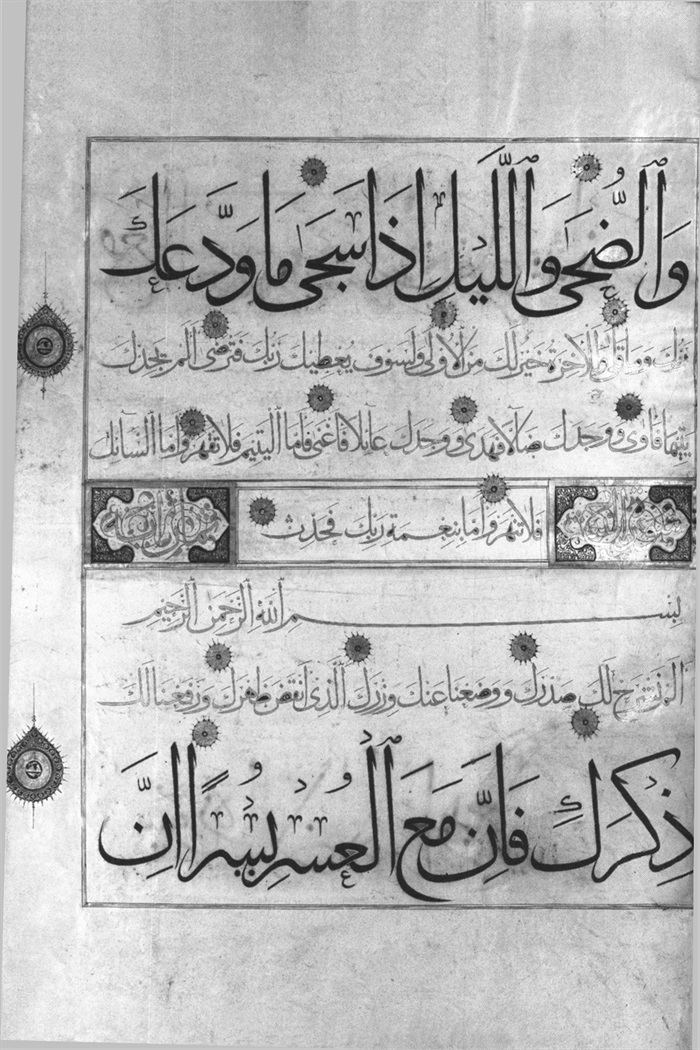 وَالضُّحَى وَاللَّيْلِ اِذَا سَجَى مَا وَدَّعَكَ
رَبُّكَ وَمَا قَلَى وَلَلْاٰخِرَةُ خَيْرٌ لَكَ مِنَ الْاُولَى وَلَسَوْفَ يُعْطِيكَ رَبُّكَ فَتَرْضَى اَلَمْ يَجِدْكَ
يَتِيمًا فَاَوَى وَوَجَدَكَ ضَالًّا فَهَدَى وَوَجَدَكَ عَائِلًا فَاَغْنَى فَاَمَّا الْيَتِيمَ فَلَا تَقْهَرْ وَاَمَّا السَّائِلَ
فَلَا تَنْهَرْ وَاَمَّا بِنِعْمَةِ رَبِّكَ فَحَدِّثْ
بِسْمِ اللّٰهِ الرَّحْمٰنِ الرَّحِيمِ
اَلَمْ نَشْرَحْ لَكَ صَدْرَكَ وَوَضَعْنَا عَنْكَ وِزْرَكَ الَّذِى اَنْقَضَ ظَهْرَكَ وَرَفَعْنَا لَكَ
ذِكْرَكَ فَاِنَّ مَعَ الْعُسْرِ يُسْرًا اِنَّ